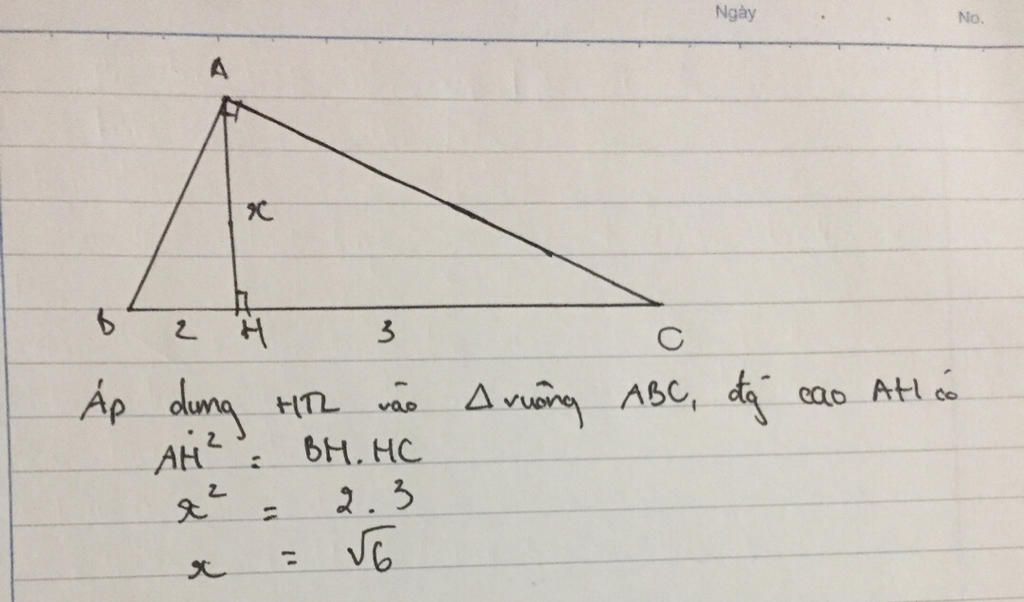 Ngày No.
A
x
B 2 H 3 C
Áp dụng HTL vào Δ vuông ABC, đg cao AH có
AH² = BH.HC
x² = 2.3
x = √6